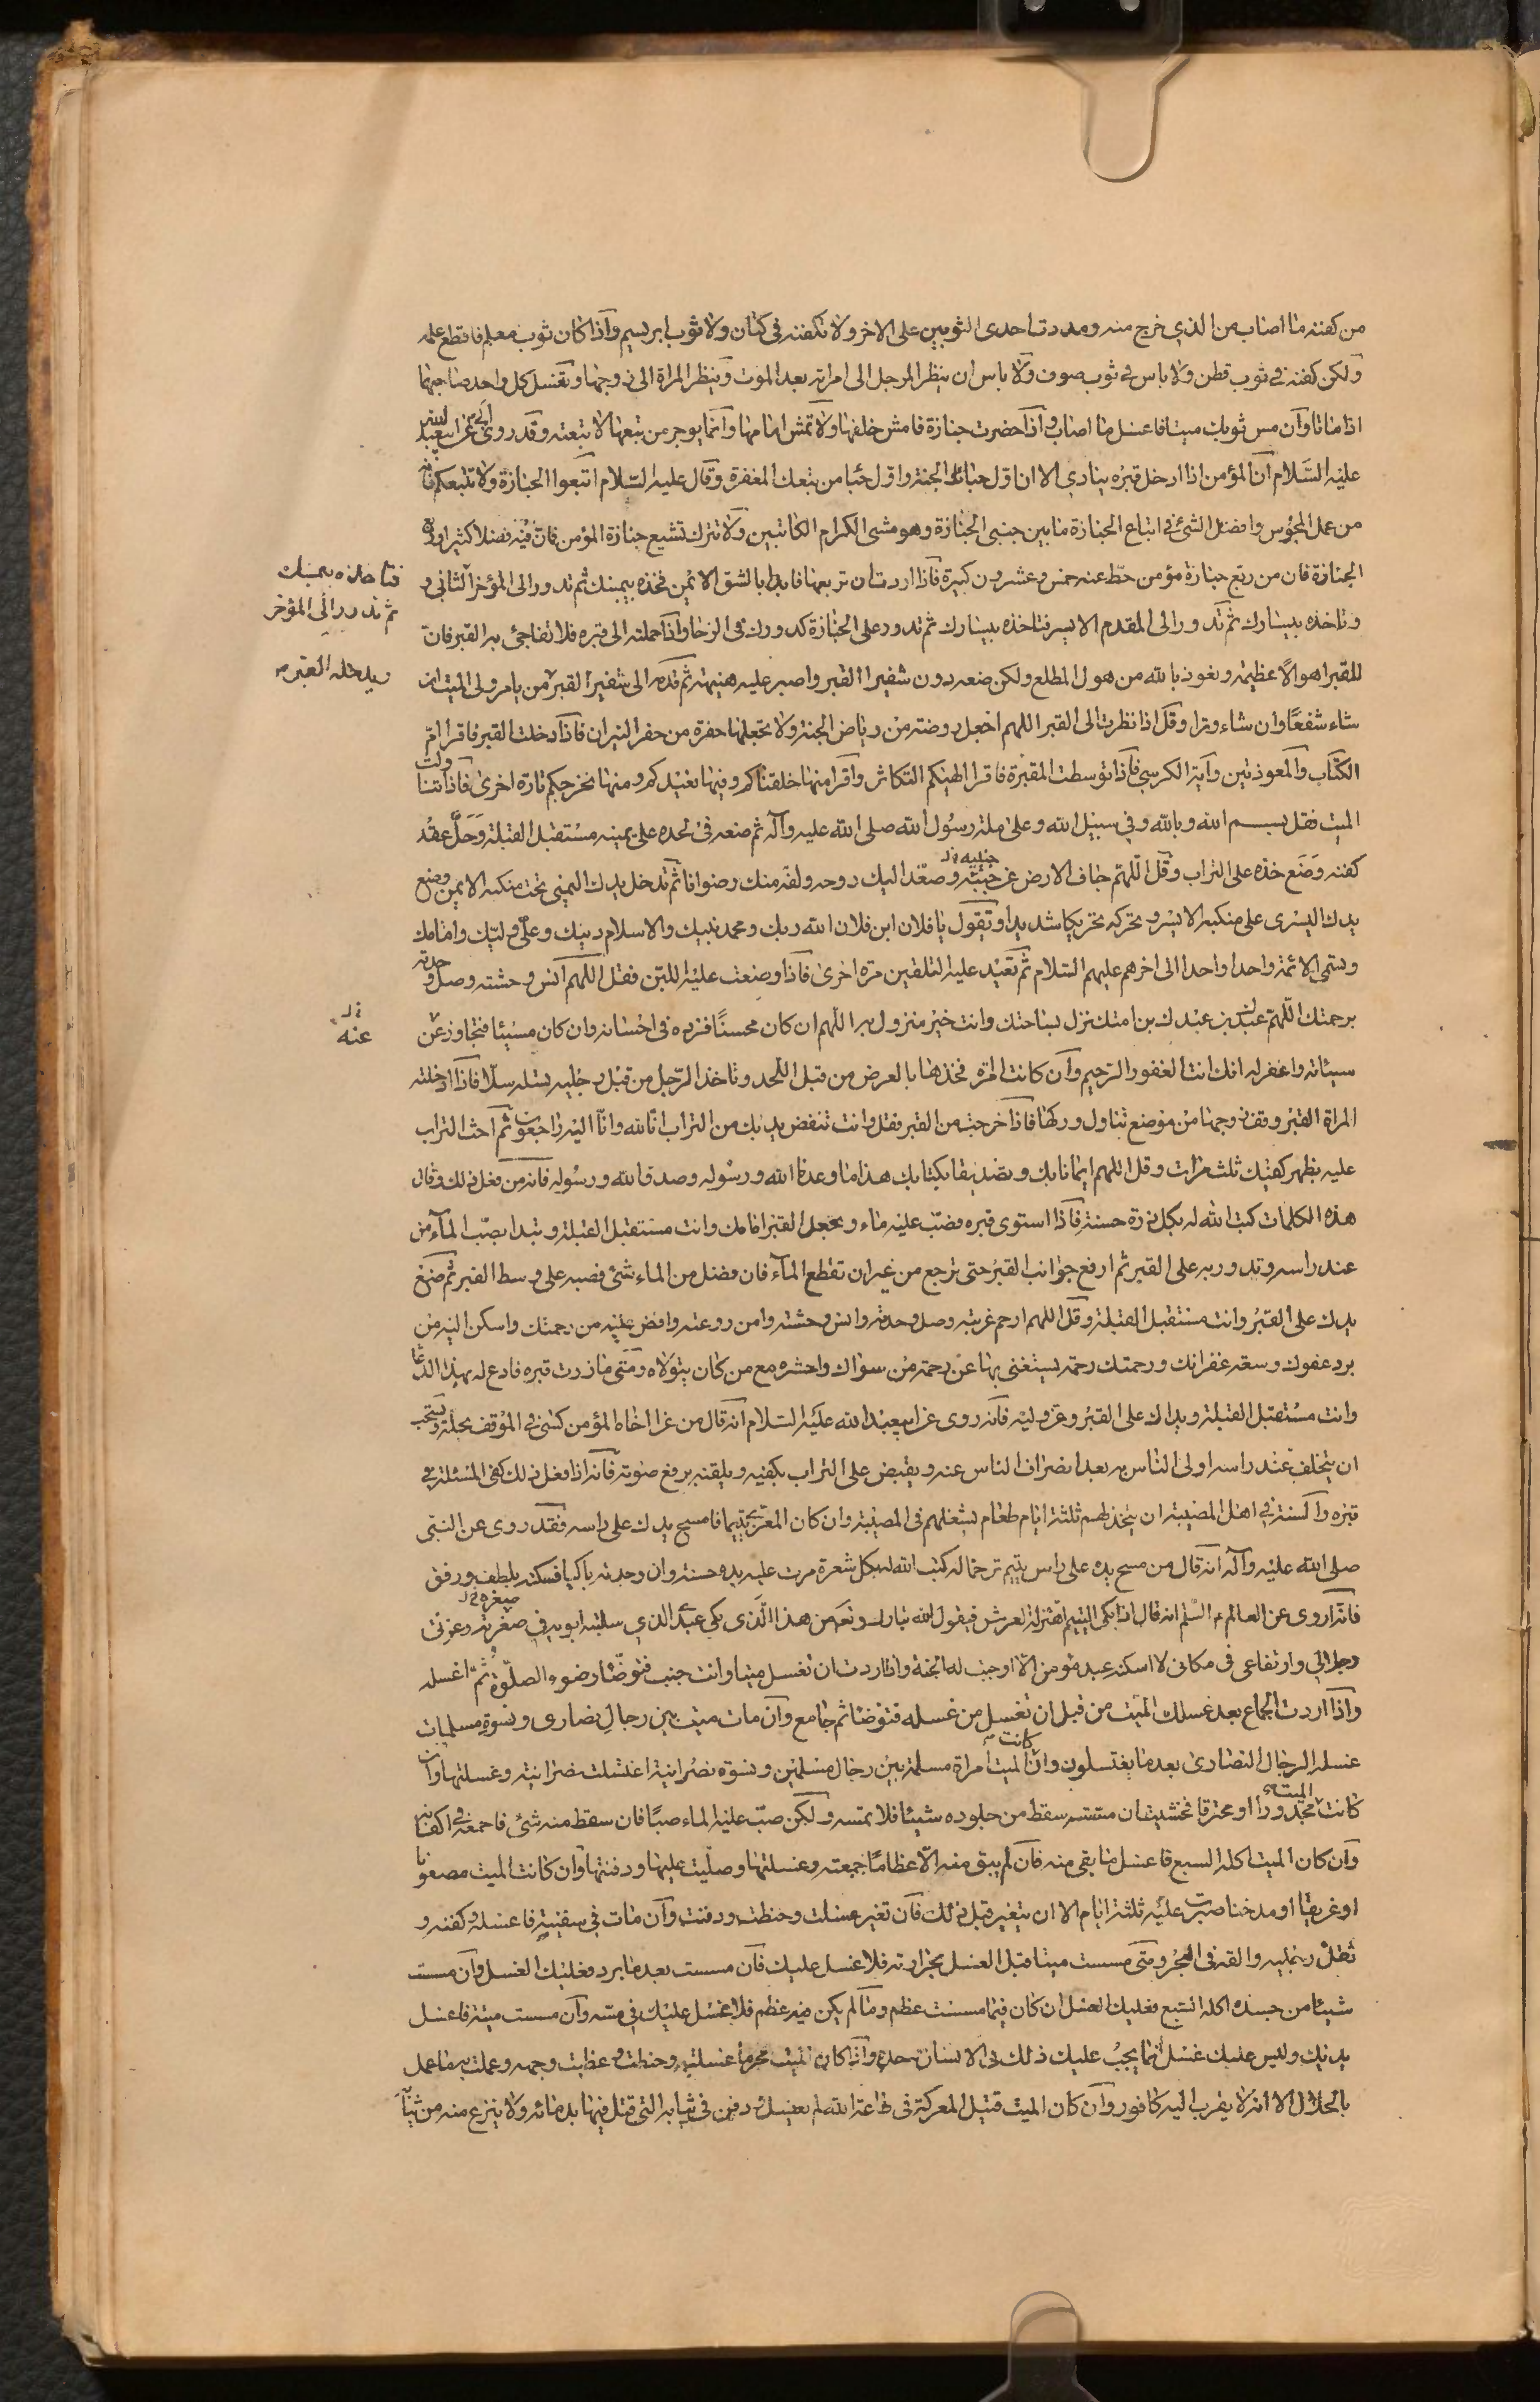 من كفنه ما اصاب من الذي خرج منه ومددت احدى الثوبين على الاخر ولا تكفنه في كتان ولا ثوب ابريسم وآذا كان ثوب معلم فاقطع علمه
ولكن كفنه في ثوب قطن ولا باس في ثوب صوف ولا باس ان ينظر الرجل الى امراته بعد الموت وينظر المراة الى زوجها ويغسل كل واحد صاحبهما
اذا ماتا وآن مس ثوبك ميتا فاغسل ما اصاب وآذا حضرت جنازة فامش خلفها ولا تمش امامها وآنما يوجر من تبعها لا تبعته وقد روى ابي عن ابيعبد الله
عليه السلام ان المؤمن اذا ادخل قبره ينادي الا ان اول حبائك الجنة واول حبا من تبعك المغفرة وقال عليه السلام اتبعوا الجنازة ولا تتبعكم فانه
من عمل المجوس وافضل الشئ في اتباع الجنازة ما بين جنبي الجنازة وهو مشى الكرام الكاتبين ولا تترك تشيع جنازة المؤمن فان فيه فضلا كثيرا وربع
الجنازة فان من ربع جنازة مؤمن حط عنه خمس وعشرون كبيرة فآذا اردت ان تربعها فابدا بالشق الايمن فخذه بيمينك ثم تدور الى المؤخر الثاني و
فتاخذه بيمينك
ثم تدور الى المؤخر
وتاخذه بيسارك ثم تدور الى المقدم الايسر فتاخذه بيسارك ثم تدور على الجنازة كدورك في الرحا وآذا حملته الى قبره فلا تفاجئ به القبر فان
للقبر اهوالا عظيمه ونعوذ بالله من هول المطلع ولكن ضعه دون شفير القبر واصبر عليه هنيهة ثم قدمه الى شفير القبر من يامره ولى الميت ان
ويدخله القبر
شاء شفعا وان شاء وترا وقل اذا نظرت الى القبر اللهم اجعل روضة من رياض الجنة ولا تجعلها حفرة من حفر النيران فآذا دخلت القبر فاقرا ام
الكتاب والمعوذتين وآية الكرسي فآذا توسطت المقبرة فاقرا الهيكم التكاثر واقرا منها خلقناكم وفيها نعيدكم ومنها نخرجكم تارة اخرى فآذا تناولت
الميت فقل بسم الله وبالله وفي سبيل الله وعلى ملة رسول الله صلى الله عليه وآله ثم ضعه في لحده على يمينه مستقبل القبلة وحل عقد
كفنه وضع خده على التراب وقل اللهم جاف الارض عن جنبيه وصعد اليك روحه ولقه منك رضوانا ثم تدخل يدك اليمنى تحت منكبه الايمن وضع
يدك اليسرى على منكبه الايسر وتحركه تحريكا شديدا وتقول يا فلان ابن فلان الله ربك ومحمد نبيك والاسلام دينك وعلي وليك وامامك
وتسمى الائمة واحدا واحدا الى اخرهم عليهم السلام ثم تعيد عليه التلقين مرة اخرى فآذا وضعت عليه اللبن فقل اللهم انس وحشته وصل وحدته
برحمتك اللهم عبدك بن عبدك بن امتك نزل بساحتك وانت خير منزول به اللهم ان كان محسنا فزده في احسانه وان كان مسيئا فتجاوز عن
عنه
سيئاته واغفر له انك انت الغفور الرحيم وآن كانت امراة فخذها بالعرض من قبل اللحد وتاخذ الرجل من قبل رجليه يسله سلا فآذا ادخلته
المراة القبر وقف زوجها من موضع تناول وركها فآذا خرجت من القبر فقل وانت تنفض يديك من التراب انا لله وانا اليه راجعون ثم احث التراب
عليه بظهر كفيك ثلث مرات وقل اللهم ايمانا بك وتصديقا بكتابك هذا ما وعدنا الله ورسوله وصدق الله ورسوله فانه من فعل ذلك وقال
هذه الكلمات كتب الله له بكل ذرة حسنة فآذا استوى قبره فصب عليه ماء وتجعل القبر امامك وانت مستقبل القبلة وتبدا بصب المآء من
عند راسه وتدور به على القبر ثم ارفع جوانب القبر حتى ترجع من غير ان تقطع المآء فان فضل من الماء شئ فصبه على وسط القبر ثم ضع
يدك على القبر وانت مستقبل القبلة وقل اللهم ارحم غربته وصل وحدته وانس وحشته وامن روعته وافض عليه من رحمتك واسكن اليه من
برد عفوك وسعة غفرانك ورحمتك رحمة يستغنى بها عن رحمة من سواك واحشره مع من كان يتولاه ومتى ما زرت قبره فادع له بهذا الدعاء
وانت مستقبل القبلة ويداك على القبر وعز وليه فانه روى عن ابيعبد الله عليه السلام انه قال من عزا اخاه المؤمن كسي في الموقف بحلة ويستحب
ان يتخلف عند راسه اولى الناس به بعد انصراف الناس عنه ويقبض على التراب بكفيه ويلقنه برفع صوته فآنه اذا فعل ذلك كفى المسئلة في
قبره والسنة في اهل المصيبة ان يتخذ لهم ثلثة ايام طعام لشغلهم في المصيبة وان كان المعزى يتيما فامسح يدك على راسه فقد روى عن النبي
صلى الله عليه وآله انه قال من مسح يده على راس يتيم ترحما له كتب الله له بكل شعرة مرت عليه يده حسنة وان وجدته باكيا فسكته بلطف ورفق
فانه اروى عن العالم ع السلم انه قال اذا بكى اليتيم اهتز له العرش فيقول الله تبارك وتعه من هذا الذي بكى عبدي الذي سلبته ابويه في صغرته وعزتى
وجلالي وارتفاعى في مكانى لا اسكته عبد مؤمن الا اوجبت له الجنة واذا اردت ان تغسل ميتا وانت جنب فتوضا وضوء الصلوة ثم اغسله
وآذا اردت الجماع بعد غسلك الميت من قبل ان تغسل من غسله فتوضا ثم جامع وآن مات ميت بين رجال نصارى ونسوة مسلمات
غسله الرجال النصارى بعد ما يغتسلون وان كانت الميت امراة مسلمة بين رجال مسلمين ونسوة نصرانية اغتسلت نصرانية وغسلتها وآن
كانت الميت مجدورا او محترقا فخشيت ان مسسته سقط من جلوده شيئا فلا تمسه ولكن صب عليه الماء صبا فان سقط منه شئ فاجمعه في اكفانه
وآن كان الميت اكله السبع فاغسل ما بقى منه فآن لم يبق منه الا عظاما جمعته وغسلتها وصليت عليها ودفنتها وآن كانت الميت مصعوقا
او غريقا او مدخنا صبرت عليه ثلثة ايام الا ان يتغير قبل ذلك فآن تغير غسلت وحنطت ودفنت وآن مات في سفينة فاغسله وكفنه و
ثقل رجليه والقه في البحر ومتى مسست ميتا قبل الغسل بحرارته فلا غسل عليك فآن مسست بعد ما برد فعليك الغسل وآن مسست
شيئا من جسده اكله السبع فعليك الغسل ان كان فيما مسست عظم وما لم يكن فيه عظم فلا غسل عليك في مسه وآن مسست ميتة فاغسل
يديك وليس عليك غسل انما يجب عليك ذلك في الانسان وحده وآذا كان الميت محرما غسلته وحنطته وغطيت وجهه وعملت به ما عمل
بالحلال الا انه لا يقرب اليه كافور وآن كان الميت قتيل المعركة في طاعة الله لم يغسل ودفن في ثيابه التي قتل فيها بدمائه ولا ينزع منه من ثيابه